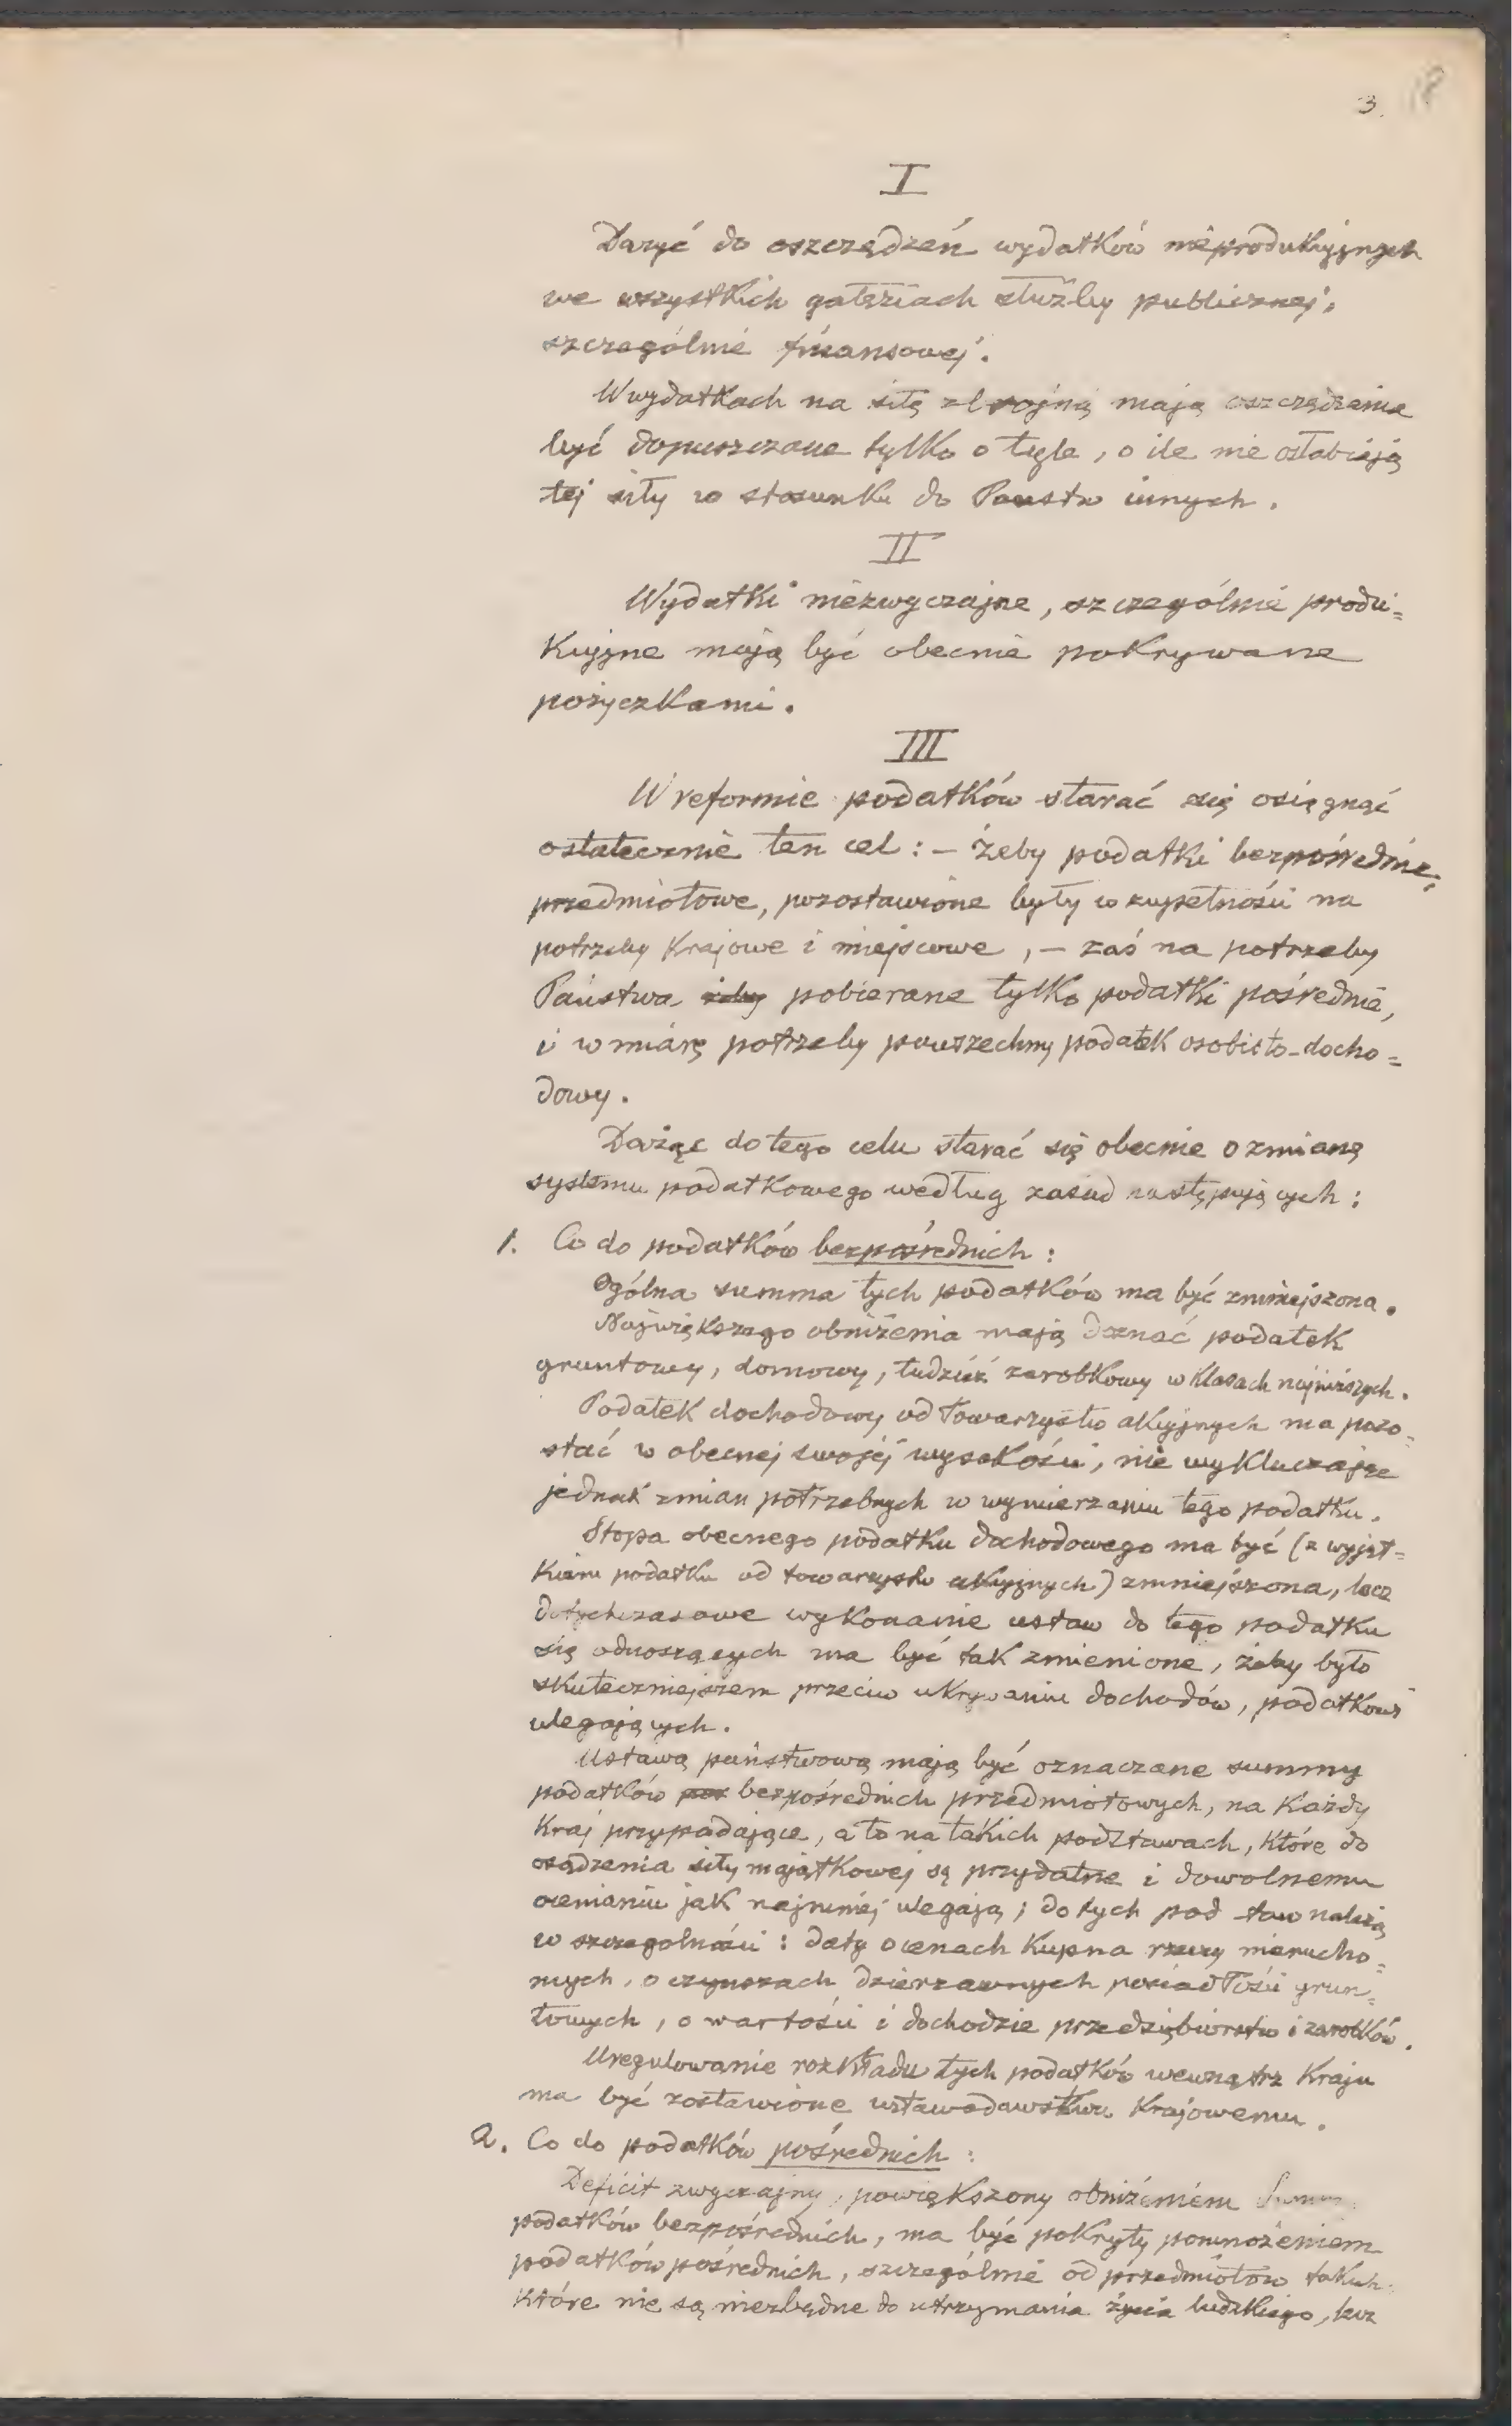 3. 18
I
Dążyć do oszczędzeń wydatków nieprodukcyjnych
we wszystkich gałęziach służby publicznej,
szczególnie finansowej.
W wydatkach na siłę zbrojną mają oszczędzenia
być dopuszczane tylko o tyle, o ile nie osłabiają
tej siły w stosunku do Państw innych.
II
Wydatki niezwyczajne, szczególnie produ=
kcyjne mają być obecnie pokrywane
pożyczkami.
III
W reformie podatków starać się osiągnąć
ostatecznie ten cel: – żeby podatki bezpośrednie,
przedmiotowe, pozostawione były w zupełności na
potrzeby krajowe i miejscowe, – zaś na potrzeby
Państwa żeby pobierane tylko podatki pośrednie,
i w miarę potrzeby powszechny podatek osobisto-docho=
dowy.
Dążąc do tego celu starać się obecnie o zmianę
systemu podatkowego według zasad następujących:
1. Co do podatków bezpośrednich:
Ogólna summa tych podatków ma być zmniejszona.
Największego obniżenia mają doznać podatek
gruntowy, domowy, tudzież zarobkowy w klasach najniższych.
Podatek dochodowy od towarzystw akcyjnych ma pozo=
stać w obecnej swojej wysokości, nie wykluczając
jednak zmian potrzebnych w wymierzaniu tego podatku.
Stopa obecnego podatku dochodowego ma być (z wyjąt=
kiem podatku od towarzystw akcyjnych) zmniejszona, lecz
dotychczasowe wykonanie ustaw do tego podatku
się odnoszących ma być tak zmienione, żeby było
skuteczniejszem przeciw ukrywaniu dochodów, podatkowi
ulegających.
Ustawą państwową mają być oznaczane summy
podatków bezpośrednich przedmiotowych, na każdy
kraj przypadające, a to na takich podstawach, które do
osądzenia siły majątkowej są przydatne i dowolnemu
ocenianiu jak najmniej ulegają; do tych podstaw należą
w szczególności: daty o cenach kupna rzeczy nierucho=
mych, o czynszach dzierżawnych posiadłości grun=
towych, o wartości i dochodzie przedsiębiorstw i zarobków.
Uregulowanie rozkładu tych podatków wewnątrz kraju
ma być zostawione ustawodawstwu krajowemu.
2. Co do podatków pośrednich:
Deficit zwyczajny, powiększony obniżeniem Summy
podatków bezpośrednich, ma być pokryty pomnożeniem
podatków pośrednich, szczególnie od przedmiotów takich,
które nie są niezbędne do utrzymania życia ludzkiego, lecz